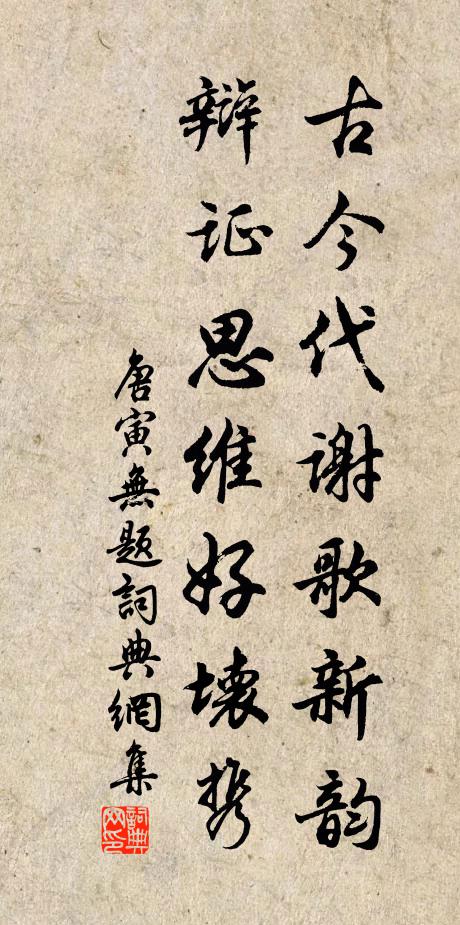 古今代谢歌新韵
辩证思维好壞携
唐寅無题詞典網集
詞典网印